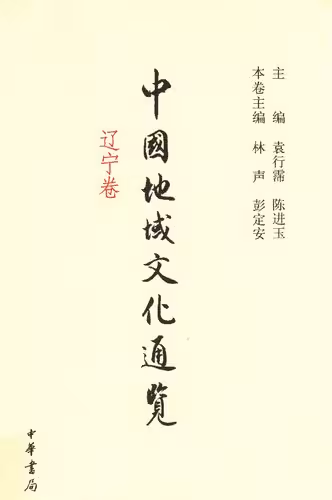 主　编　袁行霈　陈进玉
本卷主编　林　声　彭定安
中國地域文化通覽
辽宁卷
中華書局